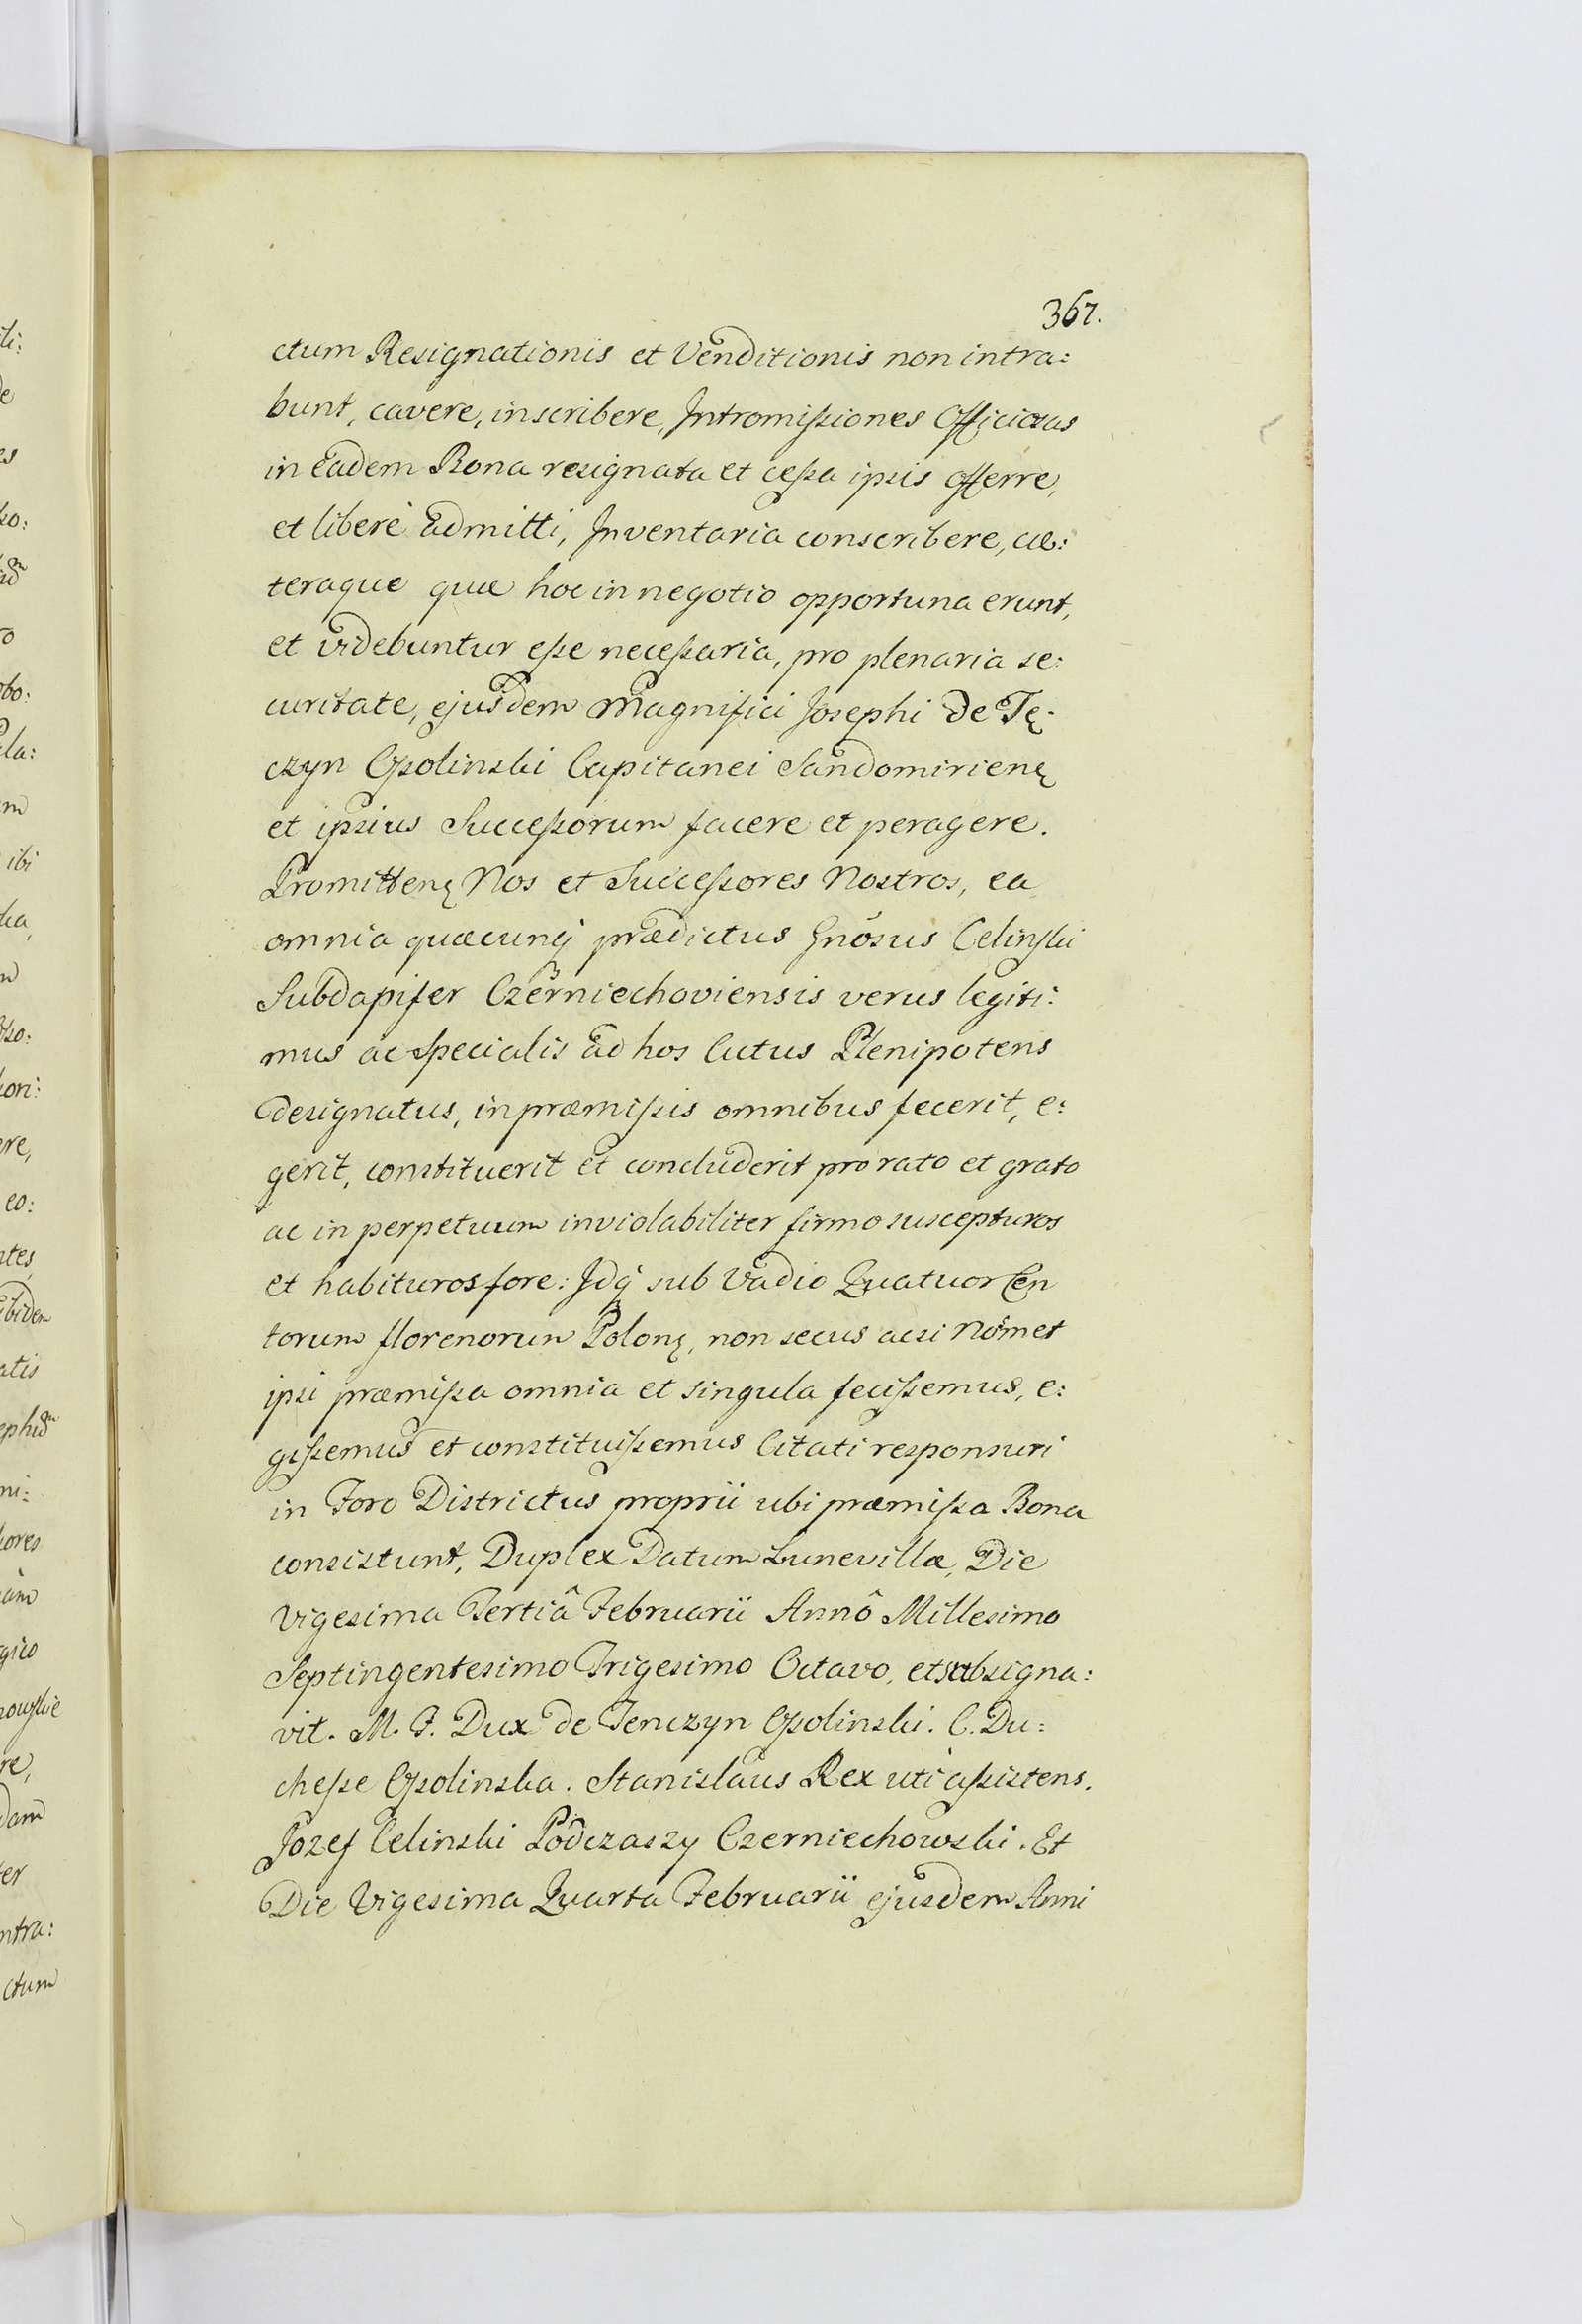 367.
ctum Resignationis et Venditionis non intra:
bunt, cavere, inscribere, Intromißiones Officiosas
in Eadem Bona resignata et ceßa ipsis offerre,
et liberè Admitti, Inventaria conscribere, cæ:
teraque quæ hoc in negotio opportuna erunt,
et videbuntur eße neceßaria, pro plenaria se:
curitate, ejusdem Magnifici Josephi De Tę:
czyn Oßolinski Capitanei Sandomirienę
et ipsius Succeßorum facere et peragere.
Promittenę Nos et Succeßores Nostros, ea
omnia quæcunq̃ prædictus Gnõsus Celinski
Subdapifer Czerniechoviensis verus legiti:
mus ac Specialis ad hos Actus Plenipotens
designatus, in præmißis omnibus fecerit, e:
gerit, constituerit et concluderit pro rato et grato
ac in perpetuum inviolabiliter firmo suscepturos
et habituros fore: Idq̃ sub Vadio Quatuor Cen
torum florenorum Polonę, non secus acsi Nõmet
ipsi præmißa omnia et singula fecißemus, e:
gißemus et constituißemus Citati responsuri
in Foro Districtus proprii ubi præmißa Bona
consistunt, Duplex Datum Lunevillæ, Die
Vigesima Tertiâ Februarii Annô Millesimo
Septingentesimo Trigesimo Octavo, et subsigna:
vit. M. F. Dux de Tenczyn Oßolinski. C. Du:
cheße Oßolinska. Stanislaus Rex uti aßistens.
Jozef Celinski Podczaszy Czerniechowski. Et
Die Vigesima Quarta Februarii ejusdem Anni